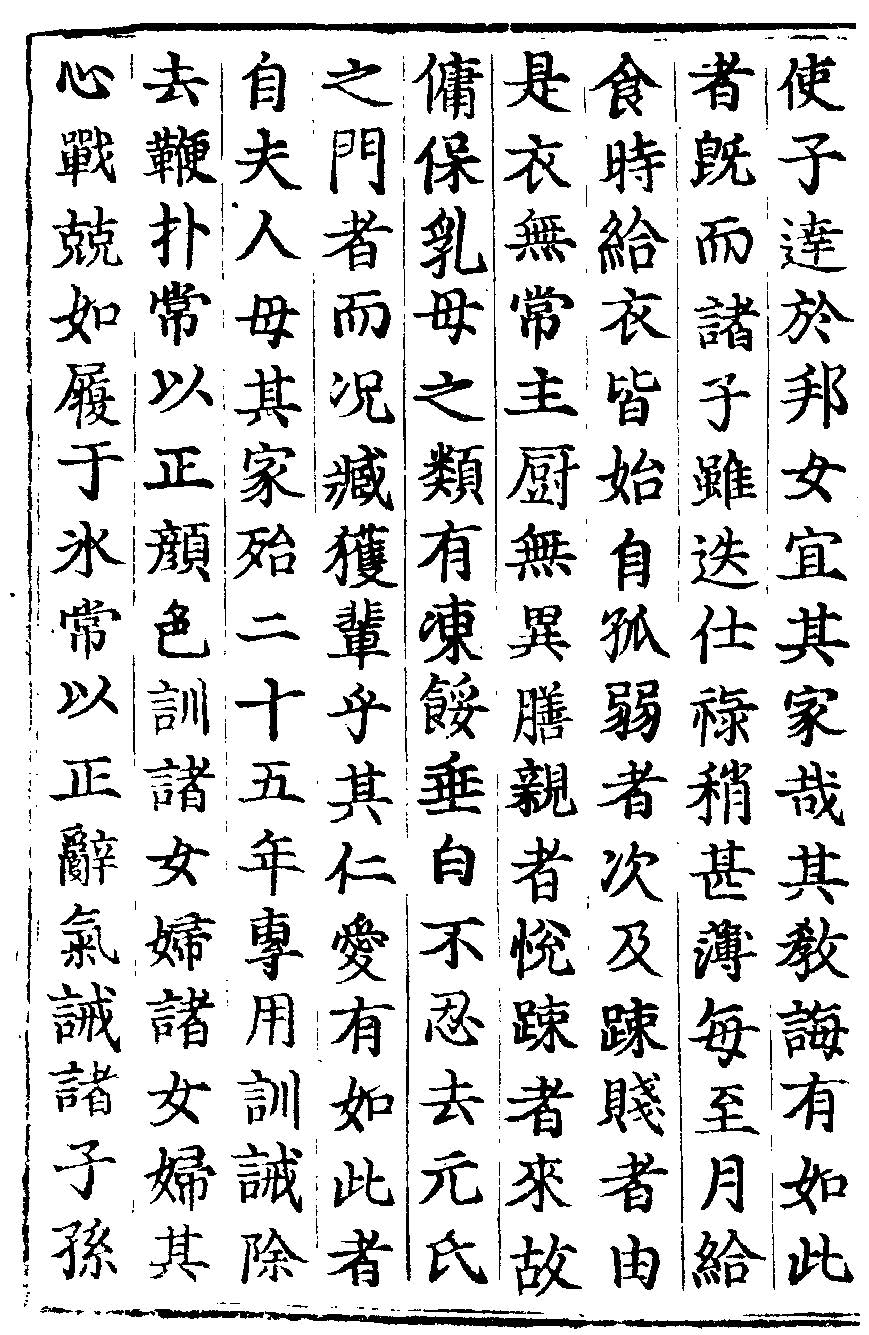 使子達於邦女宜其家哉其教誨有如此
者旣而諸子雖迭仕祿稍甚薄每至月給
食時給衣皆始自孤弱者次及踈賤者由
是衣無常主厨無異膳親者悅踈者來故
傭保乳母之類有凍餒垂白不忍去元氏
之門者而况臧獲輩乎其仁愛有如此者
自夫人母其家殆二十五年專用訓誡除
去鞭扑常以正顔色訓諸女婦諸女婦其
心戰兢如履于氷常以正辭氣誡諸子孫